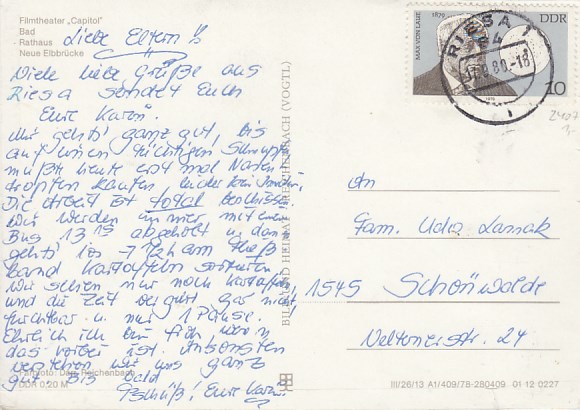 Filmtheater „Capitol"
Bad
- Rathaus
Neue Elbbrücke
Liebe Eltern!
Viele liebe Grüße aus
Riesa sendet Euch
Eure Karin.
Mir geht's ganz gut, bis
auf einen tüchtigen Schnupfen
mußte heute erst mal Nasen-
tropfen kaufen leider kein
Die Arbeit ist total beschissen
Wir werden immer mit einem
Bus 13¹⁵ abgeholt u. dann
geht's los 7 ½ h am Fließ
band Kartoffeln sortieren.
Wir sehen nur noch Kartoffeln
und die Zeit vergeht gar nicht
furchtbar u. nur 1 Pause.
Ehrlich ich bin froh wenn
das vorbei ist. Ansonsten
verstehen wir uns ganz
gut Bis bald
Tschüß! Eure Karin.
Farbfoto: Darr, Reichenbach
DDR 0,20 M
BILD UND HEIMAT REICHENBACH (VOGTL)
MAX VON LAUE
1879
DDR
10
RIESA 1
84
80-18
An
Fam. Udo Lassak
1545 Schönwalde
Veltener str. 24
III/26/13 A1/409/78-280409 01 12 0227